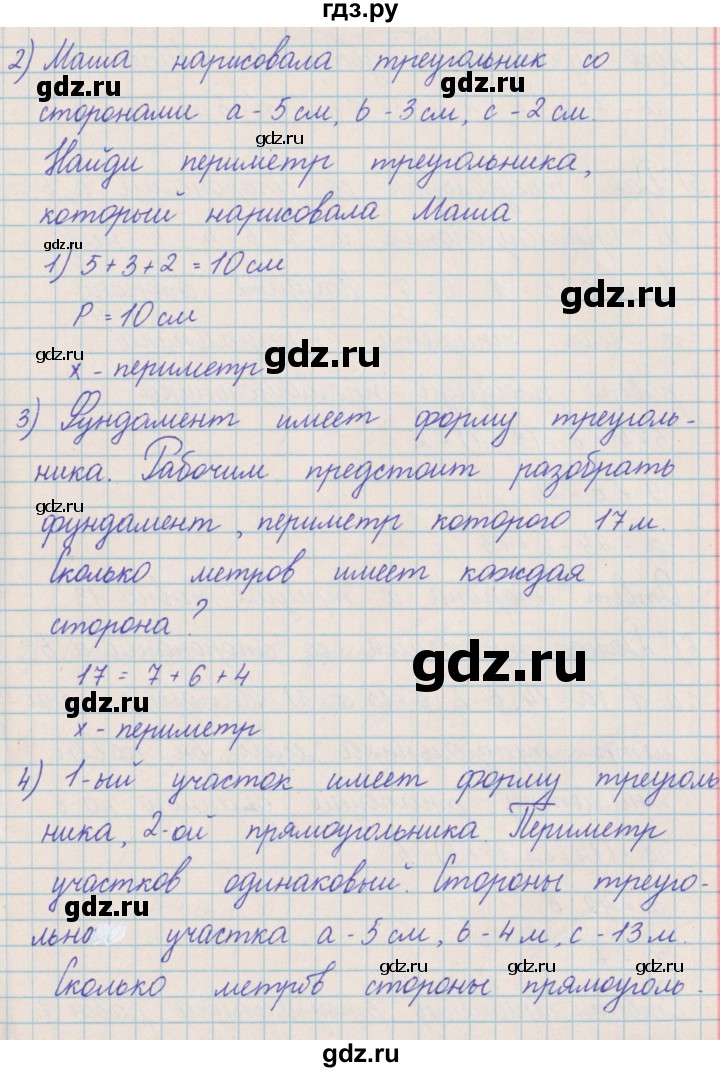 гдз.ру
2) Маша нарисовала треугольник со
gdz.ru
сторонами a - 5 см, b - 3 см, c - 2 см.
gdz.ru
Найди периметр треугольника,
gdz.ru
который нарисовала Маша
gdz.ru
1) 5 + 3 + 2 = 10 см
gdz.ru
P = 10 см
gdz.ru gdz.ru
x - периметр
3) Фундамент имеет форму треуголь-
gdz.ru
ника. Рабочим предстоит разобрать
gdz.ru
фундамент, периметр которого 17 м.
Сколько метров имеет каждая
сторона?
gdz.ru gdz.ru
17 = 7 + 6 + 4
gdz.ru
x - периметр
4) 1-ый участок имеет форму треуголь
ника, 2-ой прямоугольника. Периметр
участков одинаковый. Стороны треуго-
gdz.ru gdz.ru
льно участка a - 5 см, b - 4 м, c - 13 м.
gdz.ru gdz.ru
Сколько метров стороны прямоуголь-
gdz.ru
gdz.ru